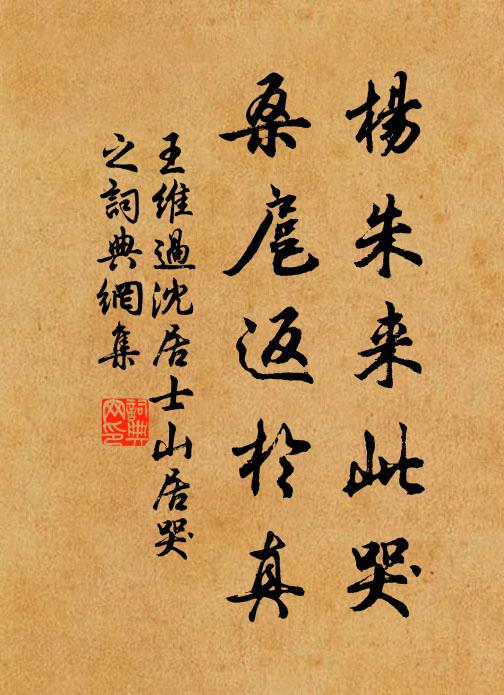 楊朱来此哭
桑扈返於真
王維過沈居士山居哭
之詞典網集
詞典
网印